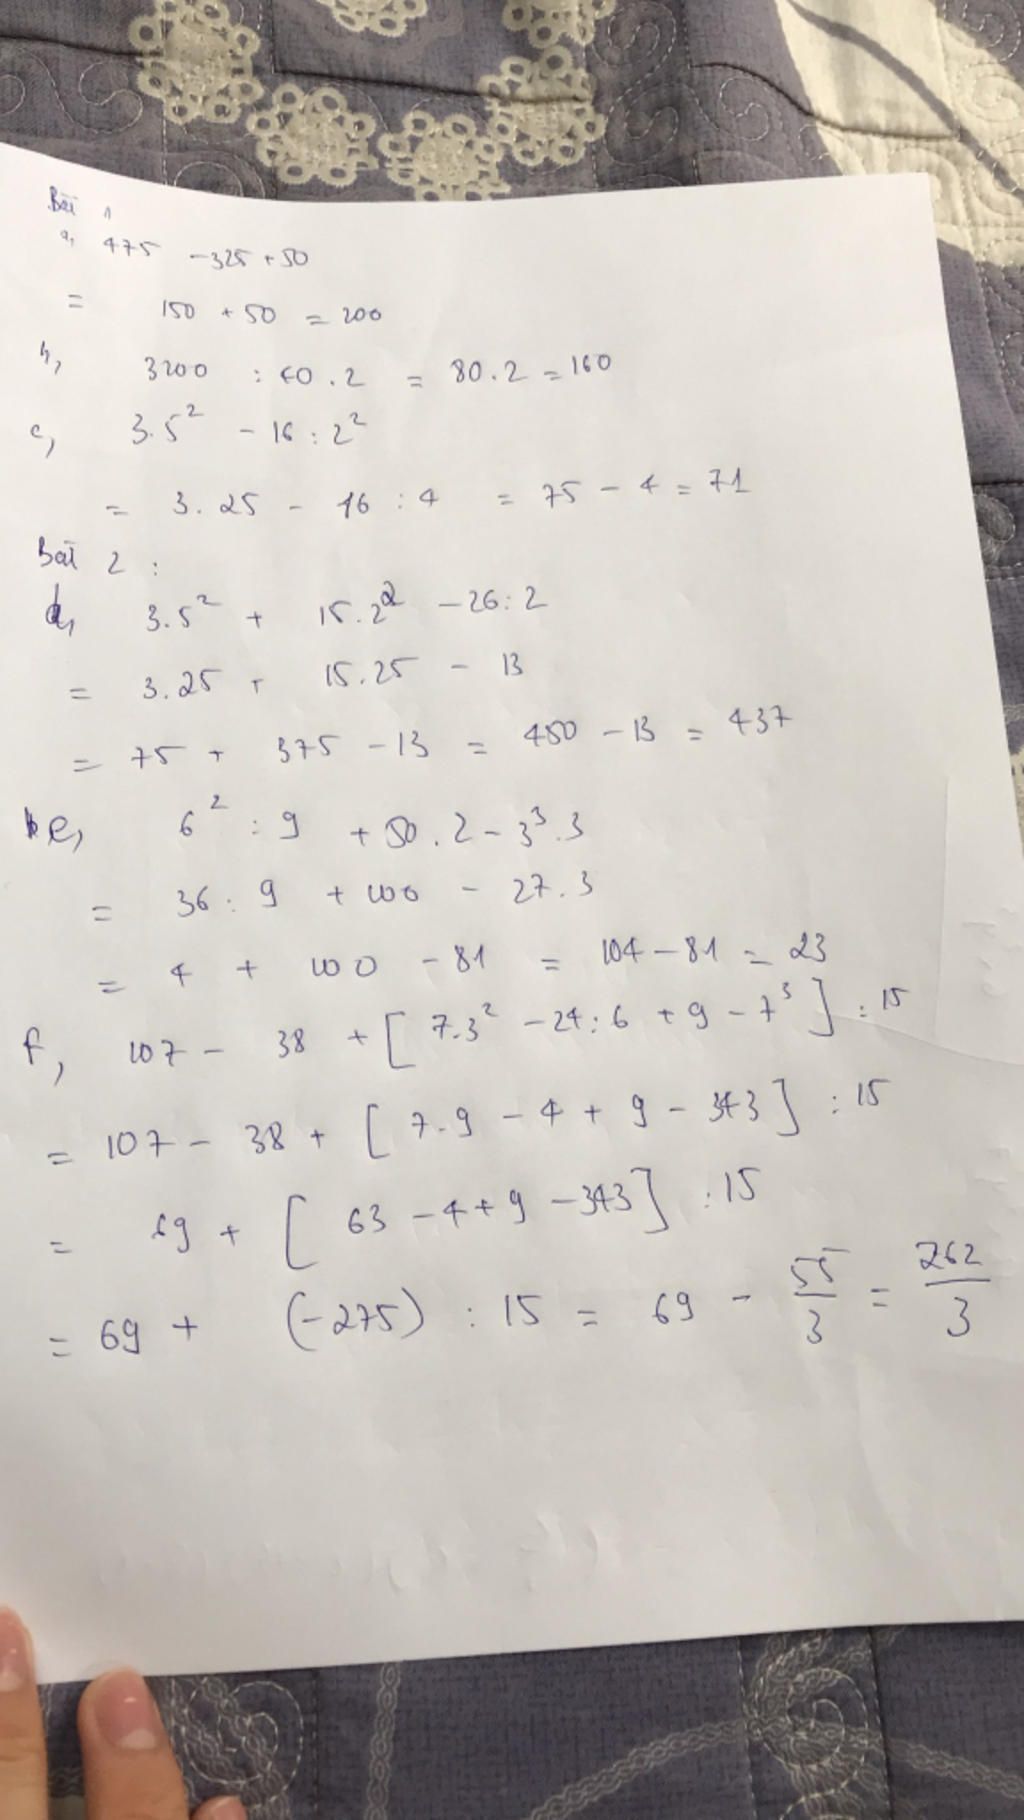 Bài 1
a, 475 - 325 + 50
= 150 + 50 = 200
b, 3200 : 40 . 2 = 80 . 2 = 160
c, 3.5² - 16 : 2²
= 3.25 - 16 : 4 = 75 - 4 = 71
Bài 2 :
d, 3.5² + 15.2² - 26 : 2
= 3.25 + 15.25 - 13
= 75 + 375 - 13 = 450 - 13 = 437
e, 6² : 9 + 50.2 - 3³.3
= 36 : 9 + 100 - 27.3
= 4 + 100 - 81 = 104 - 81 = 23
f, 107 - 38 + [7.3² - 24 : 6 + 9 - 7³] : 15
= 107 - 38 + [7.9 - 4 + 9 - 343] : 15
= 69 + [63 - 4 + 9 - 343] : 15
= 69 + (-275) : 15 = 69 - 55/3 = 262/3